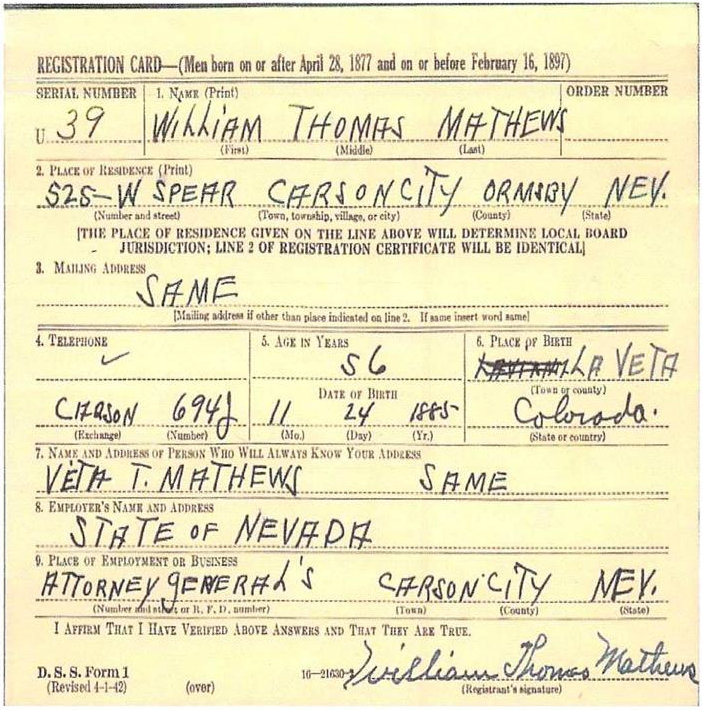 REGISTRATION CARD—(Men born on or after April 28, 1877 and on or before February 16, 1897)
SERIAL NUMBER 1. NAME (Print) ORDER NUMBER
U 39 WILLIAM THOMAS MATHEWS
(First) (Middle) (Last)
2. PLACE OF RESIDENCE (Print)
525-W SPEAR CARSON CITY ORMSBY NEV.
(Number and street) (Town, township, village, or city) (County) (State)
[THE PLACE OF RESIDENCE GIVEN ON THE LINE ABOVE WILL DETERMINE LOCAL BOARD
JURISDICTION; LINE 2 OF REGISTRATION CERTIFICATE WILL BE IDENTICAL]
3. MAILING ADDRESS
SAME
[Mailing address if other than place indicated on line 2. If same insert word same]
4. TELEPHONE 5. AGE IN YEARS 6. PLACE OF BIRTH
✓ 56 LA VETA
DATE OF BIRTH (Town or county)
CARSON 694J 11 24 1885 Colorado.
(Exchange) (Number) (Mo.) (Day) (Yr.) (State or country)
7. NAME AND ADDRESS OF PERSON WHO WILL ALWAYS KNOW YOUR ADDRESS
VETA T. MATHEWS SAME
8. EMPLOYER'S NAME AND ADDRESS
STATE OF NEVADA
9. PLACE OF EMPLOYMENT OR BUSINESS
ATTORNEY GENERAL'S CARSON CITY NEV.
(Number and street or R. F. D. number) (Town) (County) (State)
I AFFIRM THAT I HAVE VERIFIED ABOVE ANSWERS AND THAT THEY ARE TRUE.
D. S. S. Form 1 16—21630-2 William Thomas Mathews
(Revised 4-1-42) (over) (Registrant's signature)